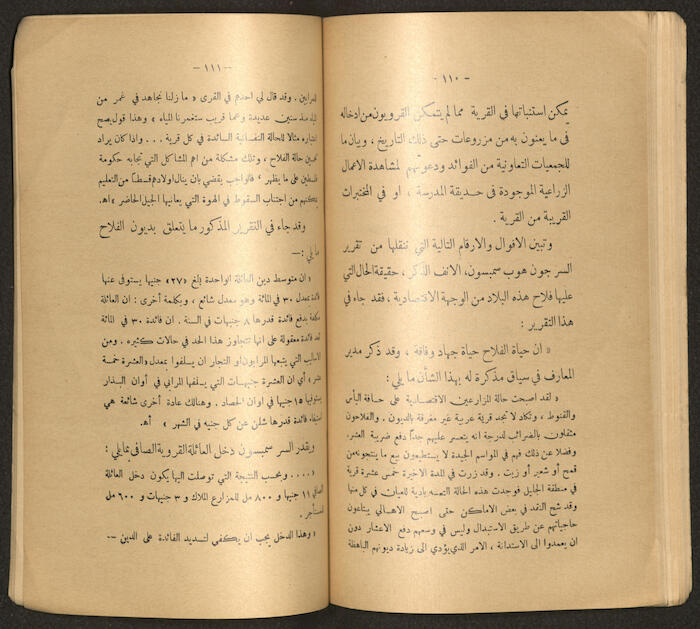 - ١١٠ -
يمكن استنباتها في القرية مما لم يتمكن القرويون من ادخاله
في ما يعنون به من مزروعات حتى ذلك التاريخ، وبيان ما
للجمعيات التعاونية من الفوائد ودعوتهم لمشاهدة الاعمال
الزراعية الموجودة في حديقة المدرسة، او في المختبرات
القريبة من القرية .
وتبين الاقوال والارقام التالية التي ننقلها من تقرير
السر جون هوب سمبسون، الانف الذكر، حقيقة الحال التي
عليها فلاح هذه البلاد من الوجهة الاقتصادية، فقد جاء في
هذا التقرير :
« ان حياة الفلاح حياة جهاد وفاقة، وقد ذكر مدير
المعارف في سياق مذكرة له بهذا الشأن ما يلي :
« لقد اصبحت حالة المزارعين الاقتصادية على حافة اليأس
والقنوط، وتكاد لا تجد قرية عربية غير مغرقة بالديون. والفلاحون
مثقلون بالضرائب لدرجة انه يتعسر عليهم جداً دفع ضريبة العشر.
وفضلا عن ذلك فهم في المواسم الجيدة لا يستطيعون بيع ما ينتجونه من
قمح أو شعير أو زيت. وقد زرت في المدة الاخيرة خمس عشرة قرية
في منطقة الجليل فوجدت هذه الحالة التعسه بادية للعيان في كل منها
وقد شح النقد في بعض الاماكن حتى اصبح الاهالي يبتاعون
حاجياتهم عن طريق الاستبدال وليس في وسعهم دفع الاعشار دون
ان يعمدوا الى الاستدانة، الامر الذي يؤدي الى زيادة ديونهم الباهظة
- ١١١ -
للمرابين. وقد قال لي احدهم في القرى « ما زلنا نجاهد في غمر من
المياه منذ سنين عديدة وعما قريب ستغمرنا المياه » وهذا قول يصح
اعتباره مثالا للحالة النفسانية السائدة في كل قرية ... واذا كان يراد
تحسين حالة الفلاح، وتلك مشكلة من اهم المشاكل التي تجابه حكومة
فلسطين على ما يظهر، فالواجب يقضي بان ينال اولادهم قسطاً من التعليم
يمكنهم من اجتناب السقوط في الهوة التي يعانيها الجيل الحاضر » اهـ.
وقد جاء في التقرير المذكور ما يتعلق بديون الفلاح
ما يلي :—
« ان متوسط دين العائلة الواحدة بلغ «٢٧» جنيها يستوفى عنها
فائدة بمعدل ٣٠ في المائة وهو معدل شائع، وبكلمة أخرى : ان العائلة
مكلفة بدفع فائدة قدرها ٨ جنيهات في السنة. ان فائدة ٣٠ في المائة
تعد فائدة معقولة على انها تتجاوز هذا الحد في حالات كثيره. ومن
الاساليب التي يتبعها المرابون أو التجار ان يسلفوا بمعدل «العشرة خمسة
عشر» أي ان العشرة جنيهات التي يسلفها المرابي في أوان البذار
يستوفيها ١٥ جنيها في اوان الحصاد. وهنالك عادة أخرى شائعة هي
استيفاء فائدة قدرها شلن عن كل جنيه في الشهر » اهـ
ويقدر السر سمبسون دخل العائلة القروية الصافي بما يلي :
« .... وبحسب النتيجة التي توصلت اليها يكون دخل العائلة
الصافي ١١ جنيها و ٨٠٠ مل للمزارع الملاك و ٣ جنيهات و ٦٠٠ مل
للمستأجر.
« وهذا الدخل يجب ان يكفي لتسديد الفائدة على الدين —